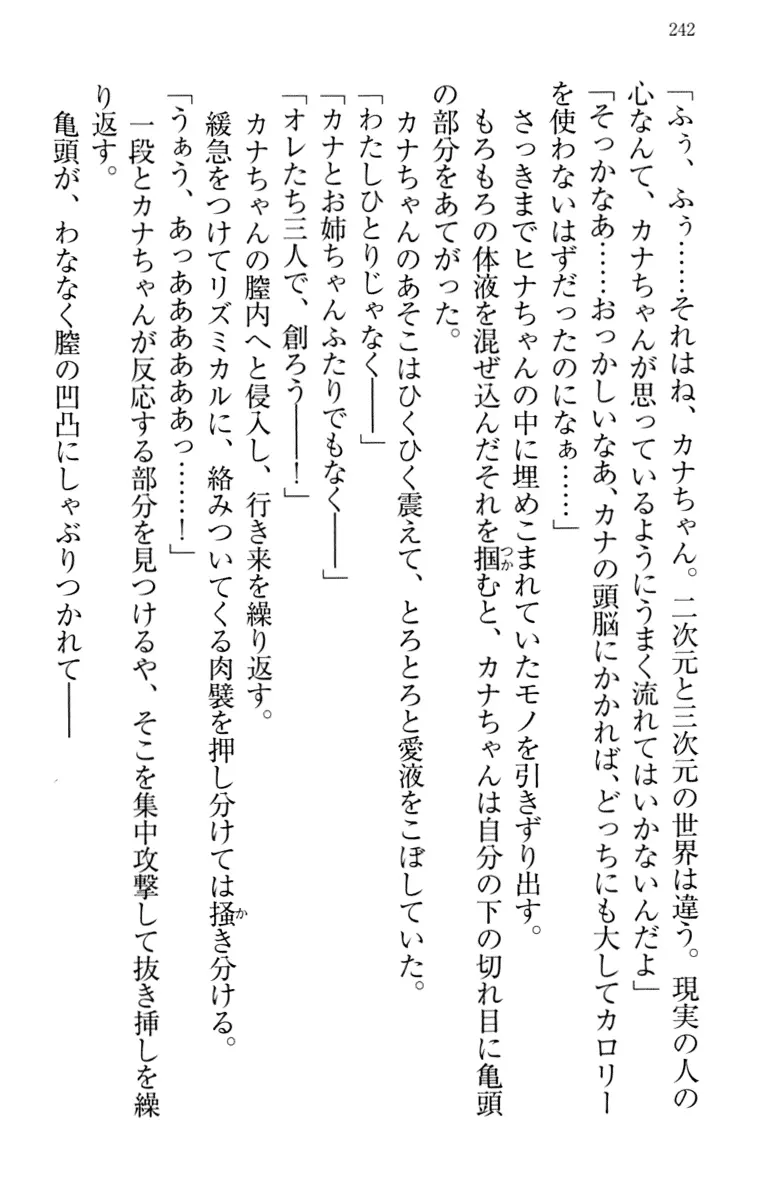 242
「ふぅ、ふぅ……それはね、カナちゃん。二次元と三次元の世界は違う。現実の人の
心なんて、カナちゃんが思っているようにうまく流れてはいかないんだよ」
「そっかなあ……おっかしいなあ、カナの頭脳にかかれば、どっちにも大してカロリー
を使わないはずだったのになぁ……」
さっきまでヒナちゃんの中に埋めこまれていたモノを引きずり出す。
もろもろの体液を混ぜ込んだそれを掴つかむと、カナちゃんは自分の下の切れ目に亀頭
の部分をあてがった。
カナちゃんのあそこはひくひく震えて、とろとろと愛液をこぼしていた。
「わたしひとりじゃなく――」
「カナとお姉ちゃんふたりでもなく――」
「オレたち三人で、創ろう――！」
カナちゃんの膣内へと侵入し、行き来を繰り返す。
緩急をつけてリズミカルに、絡みついてくる肉襞を押し分けては掻かき分ける。
「うぁう、あっあああああっ……！」
一段とカナちゃんが反応する部分を見つけるや、そこを集中攻撃して抜き挿しを繰
り返す。
亀頭が、わななく膣の凹凸にしゃぶりつかれて――